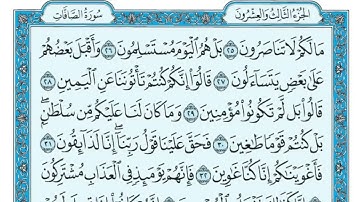 الجزء الثالث والعشرون
سورة الصافات
مَا لَكُمْ لَا تَنَاصَرُونَ ٢٥ بَلْ هُمُ الْيَوْمَ مُسْتَسْلِمُونَ ٢٦ وَأَقْبَلَ بَعْضُهُمْ
عَلَىٰ بَعْضٍ يَتَسَاءَلُونَ ٢٧ قَالُوا إِنَّكُمْ كُنْتُمْ تَأْتُونَنَا عَنِ الْيَمِينِ ٢٨
قَالُوا بَلْ لَمْ تَكُونُوا مُؤْمِنِينَ ٢٩ وَمَا كَانَ لَنَا عَلَيْكُمْ مِنْ سُلْطَانٍ
بَلْ كُنْتُمْ قَوْمًا طَاغِينَ ٣٠ فَحَقَّ عَلَيْنَا قَوْلُ رَبِّنَا إِنَّا لَذَائِقُونَ ٣١
فَأَغْوَيْنَاكُمْ إِنَّا كُنَّا غَاوِينَ ٣٢ فَإِنَّهُمْ يَوْمَئِذٍ فِي الْعَذَابِ مُشْتَرِكُونَ